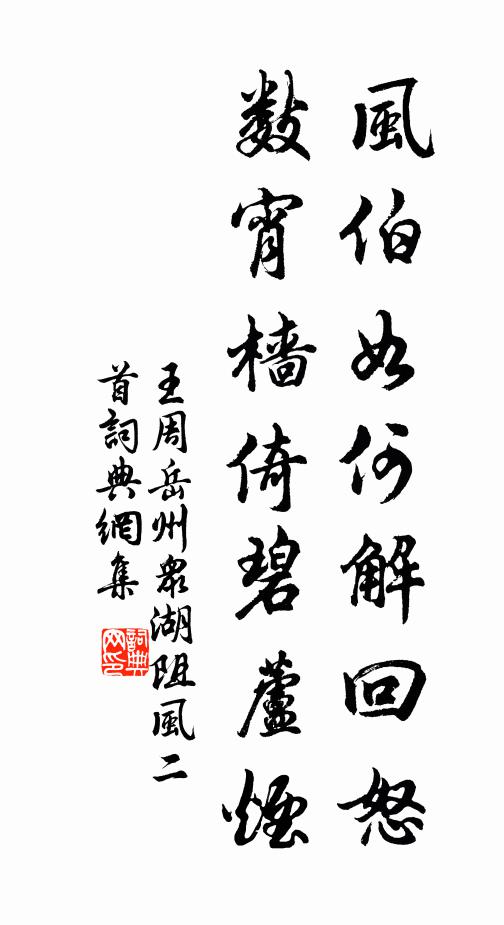 風伯如何解回怒
數宵檣倚碧蘆煙
王周岳州衆湖阻風二
首詞典網集
詞典
网印